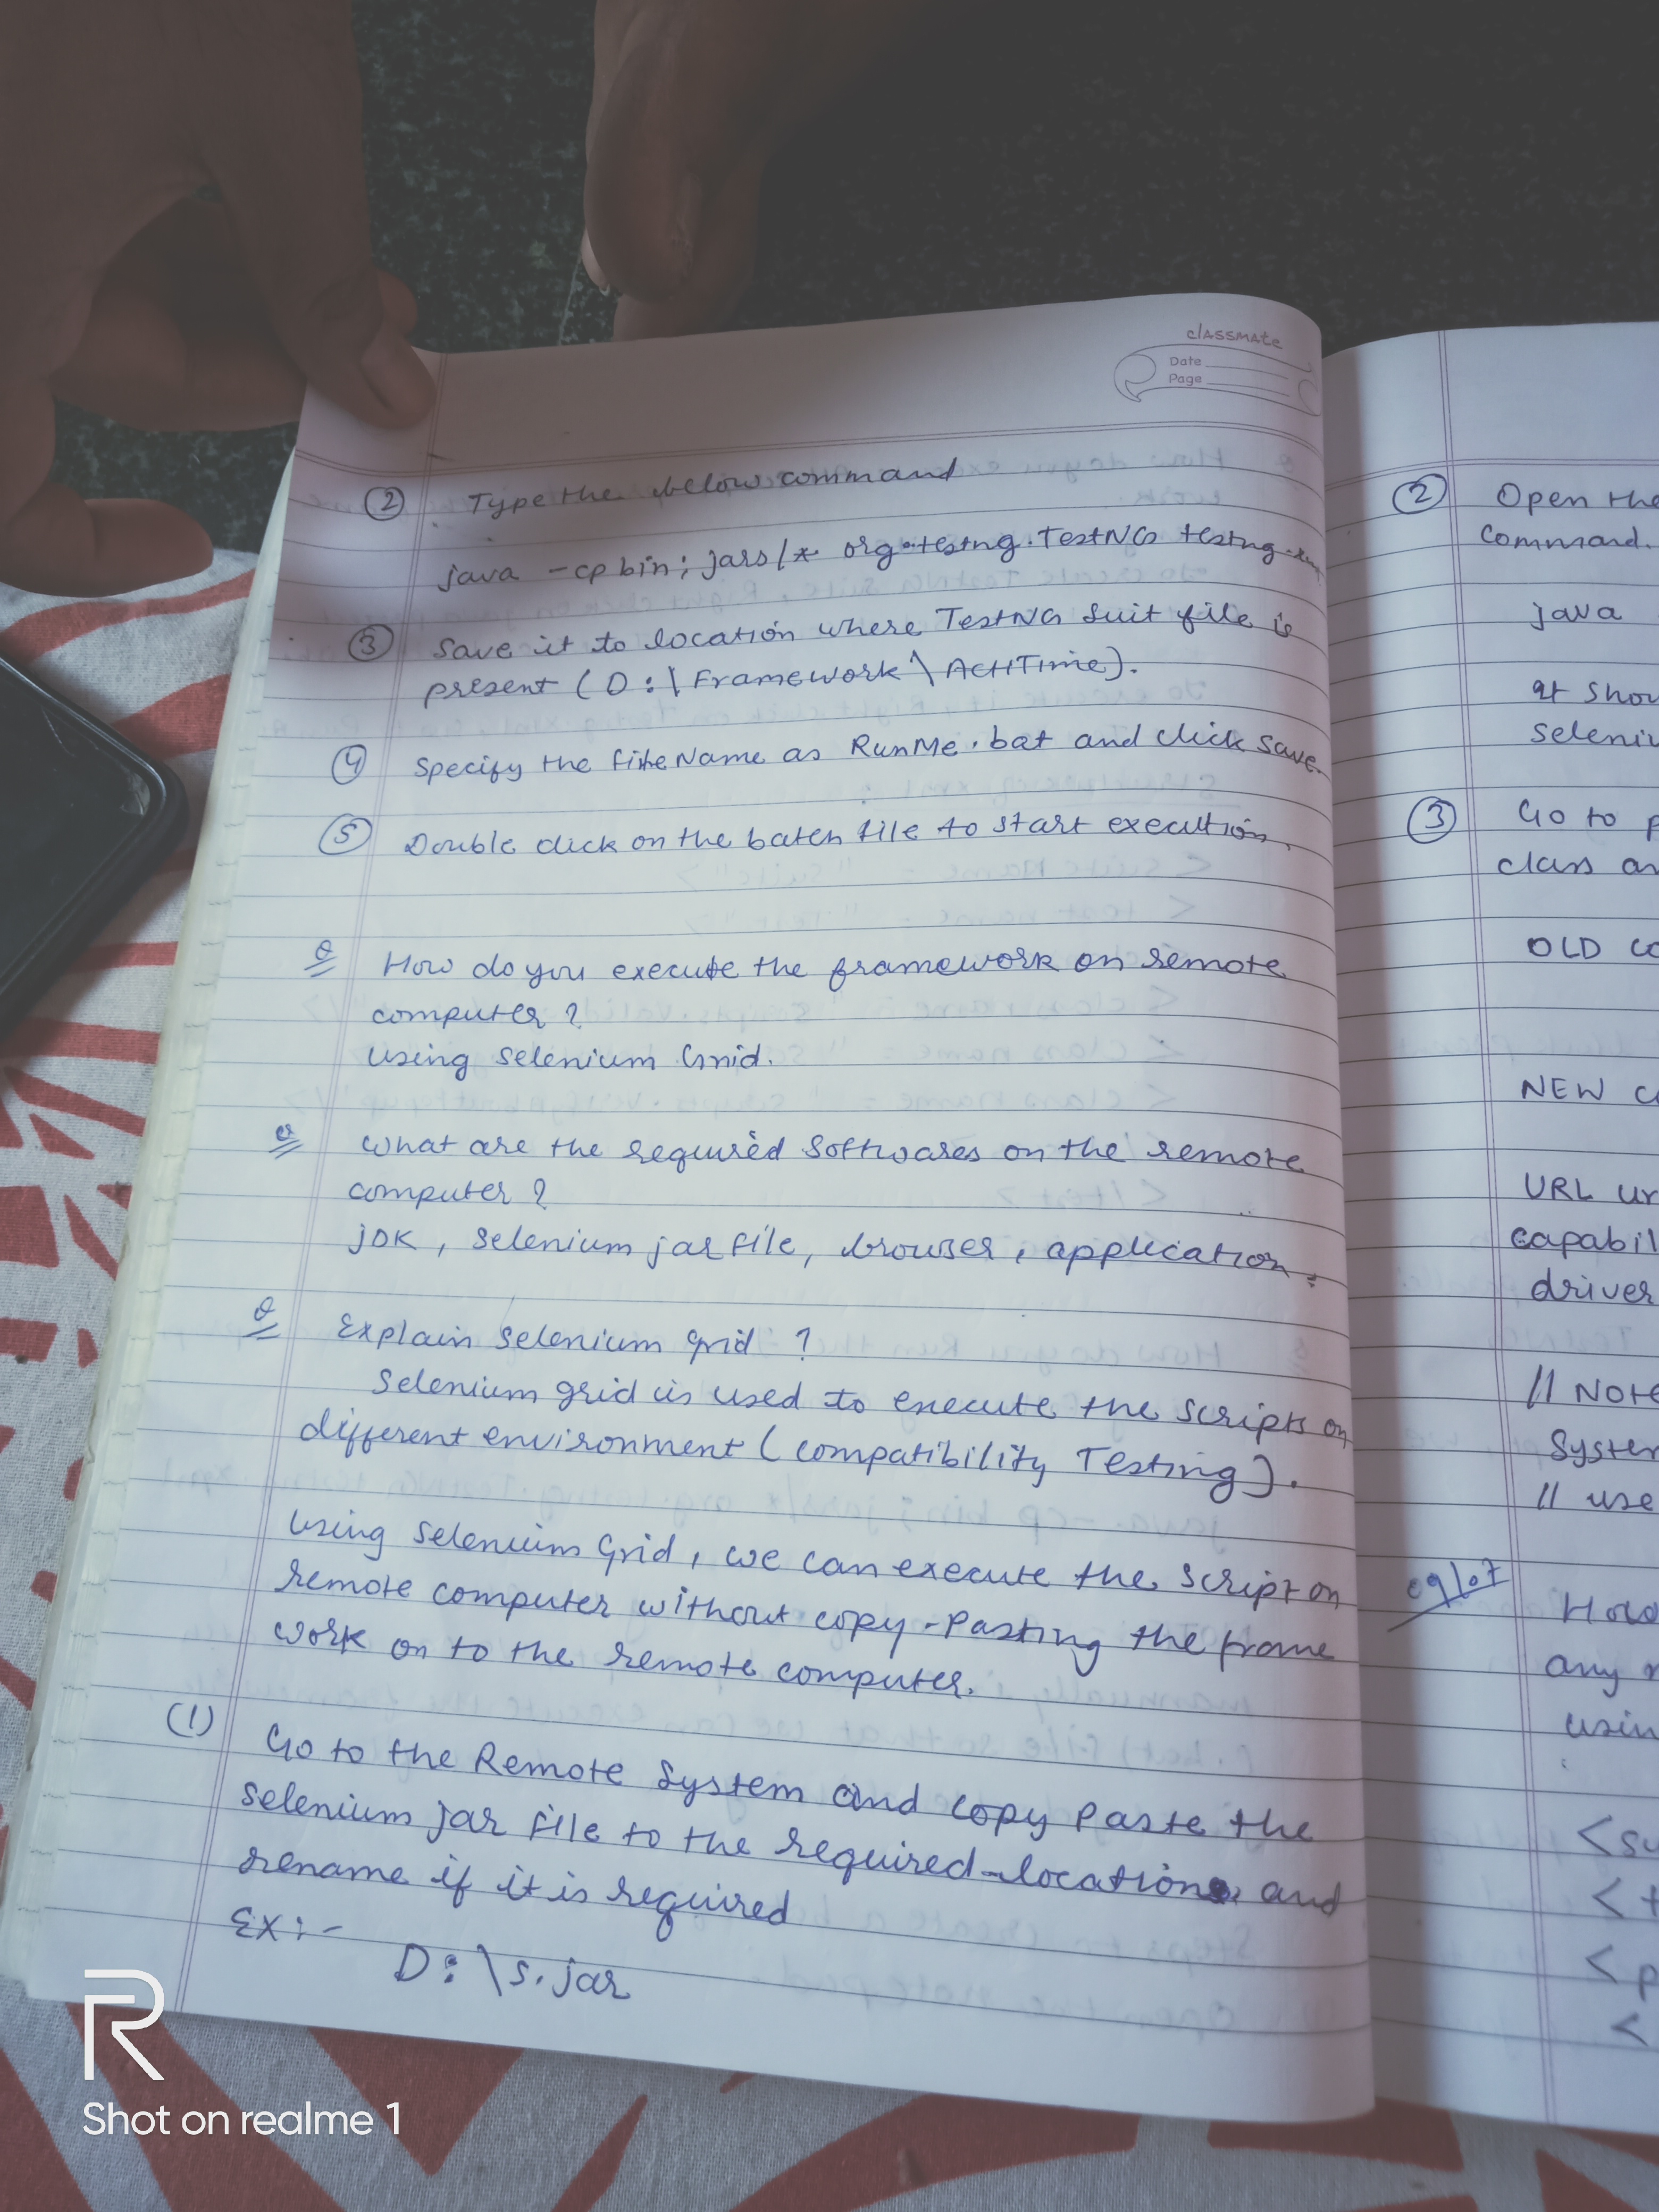 classmate
Date
Page
② Type the below command
java -cp bin; jars/* org.testng.TestNG testng.xm
③ Save it to location where TestNG Suit file is
present (D:\Framework\ActiTime).
④ Specify the fileName as RunMe.bat and click Save.
⑤ Double click on the batch file to start execution.
Q How do you execute the framework on remote
computer ?
using selenium Grid.
Q what are the required Softwares on the remote
computer ?
jDK, selenium jar file, browser, application.
Q Explain selenium grid ?
Selenium grid is used to execute the scripts on
different environment (compatibility Testing).
Using Selenium Grid, we can execute the script on
remote computer without copy-Pasting the frame
work on to the remote computer.
(1) Go to the Remote System and copy Paste the
selenium jar file to the required locations and
rename if it is required
Ex:-
D:\s.jar
② Open the
Command.
java
It shou
seleniu
③ Go to p
class an
OLD co
NEW c
URL ur
capabil
driver
// NOTE
System
// use
09/07
How
any
usin
<su
<t
<p
<
R
Shot on realme 1